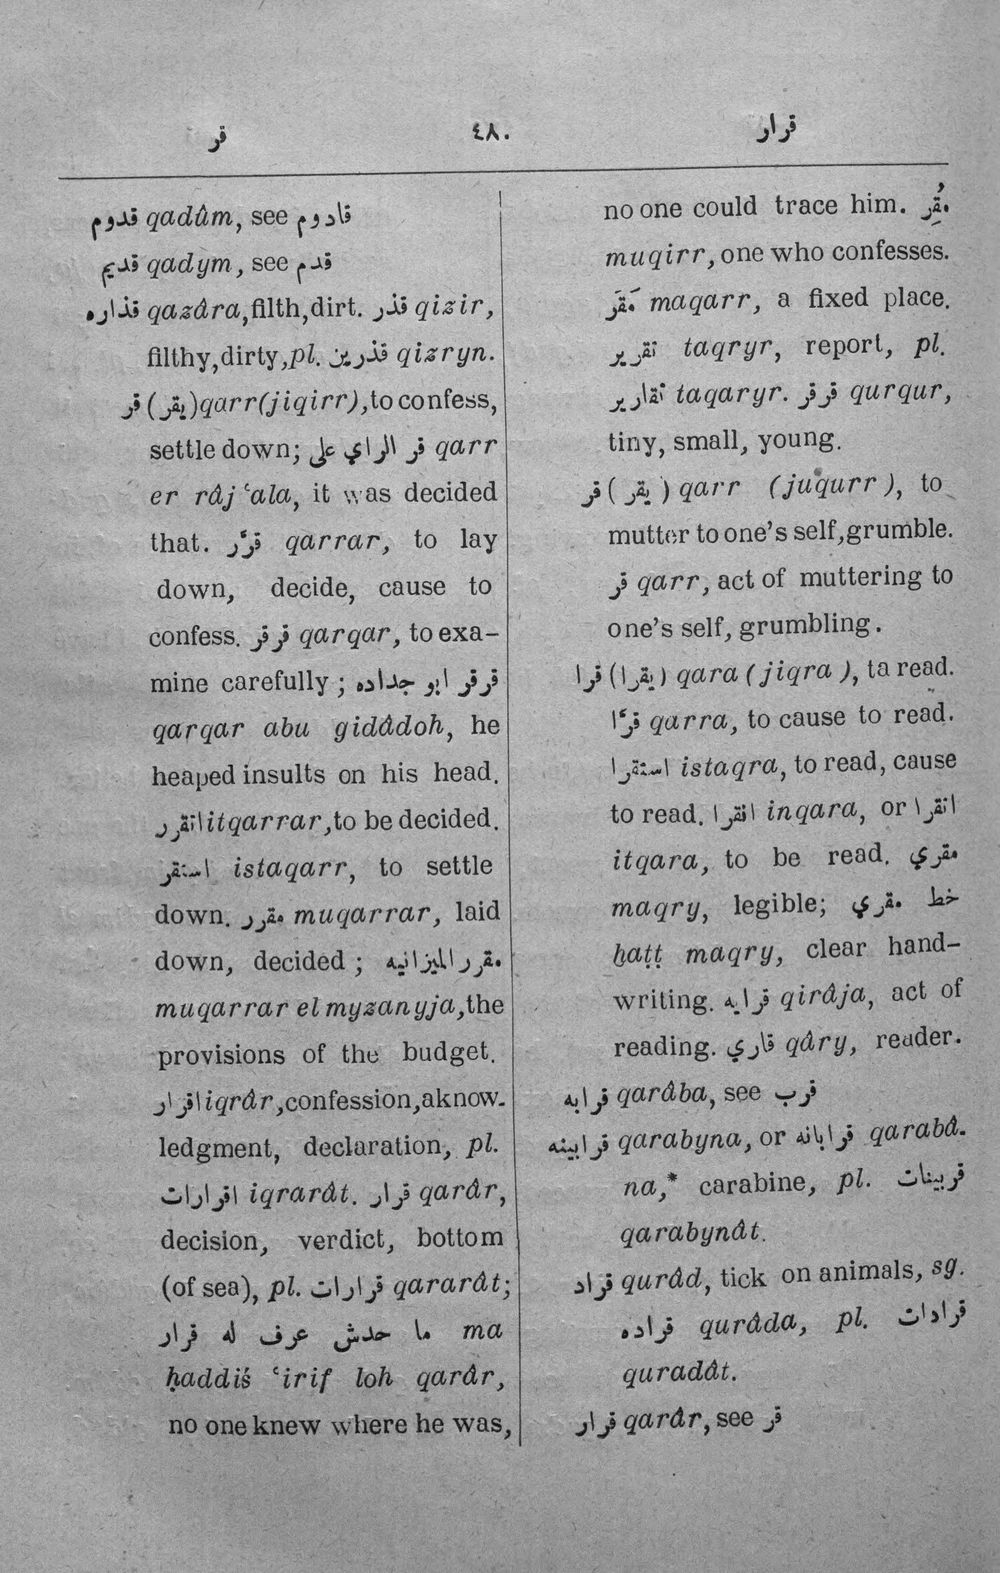 قر ٤٨٠ قرار
قدوم qadûm, see قادوم
قديم qadym, see قدم
قذاره qazâra, filth, dirt. قذر qizir,
filthy, dirty, pl. قذرين qizryn.
قر (يقر) qarr (jiqirr), to confess,
settle down; قر الراي على qarr
er râj ʿala, it was decided
that. قرَّر qarrar, to lay
down, decide, cause to
confess. قرقر qarqar, to exa-
mine carefully; قرقر ابو جداده
qarqar abu gidâdoh, he
heaped insults on his head.
اتقرر itqarrar, to be decided.
استقر istaqarr, to settle
down. مقرر muqarrar, laid
down, decided; مقرر الميزانيه
muqarrar el myzanyja, the
provisions of the budget.
اقرار iqrâr, confession, aknow-
ledgment, declaration, pl.
اقرارات iqrarât. قرار qarâr,
decision, verdict, bottom
(of sea), pl. قرارات qararât;
ما حدش عرف له قرار ma
ḥaddiś ʿirif loh qarâr,
no one knew where he was,
no one could trace him. مُقِر
muqirr, one who confesses.
مَقَر maqarr, a fixed place.
تقرير taqryr, report, pl.
تقارير taqaryr. قرقر qurqur,
tiny, small, young.
قر (يقر) qarr (juqurr), to
mutter to one's self, grumble.
قر qarr, act of muttering to
one's self, grumbling.
قرا (يقرا) qara (jiqra), ta read.
قرَّا qarra, to cause to read.
استقرا istaqra, to read, cause
to read. انقرا inqara, or اتقرا
itqara, to be read. مقري
maqry, legible; خط مقري
ḫaṭṭ maqry, clear hand-
writing. قرايه qirâja, act of
reading. قاري qâry, reader.
قرابه qarâba, see قرب
قرابينه qarabyna, or قرابانه qarabâ-
na,* carabine, pl. قربينات
qarabynât.
قراد qurâd, tick on animals, sg.
قراده qurâda, pl. قرادات
quradât.
قرار qarâr, see قر